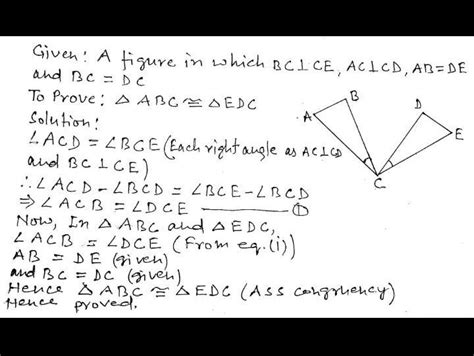 Given: A figure in which BC⊥CE, AC⊥CD, AB=DE
and BC = DC
To Prove: △ABC ≅ △EDC
Solution:
∠ACD = ∠BCE (Each right angle as AC⊥CD
and BC⊥CE)
∴ ∠ACD - ∠BCD = ∠BCE - ∠BCD
⇒ ∠ACB = ∠DCE — ①
Now, In △ABC and △EDC,
∠ACB = ∠DCE (From eq.(i))
AB = DE (given)
and BC = DC (given)
Hence △ABC ≅ △EDC (ASS congruency)
Hence proved.
A
B
D
E
C